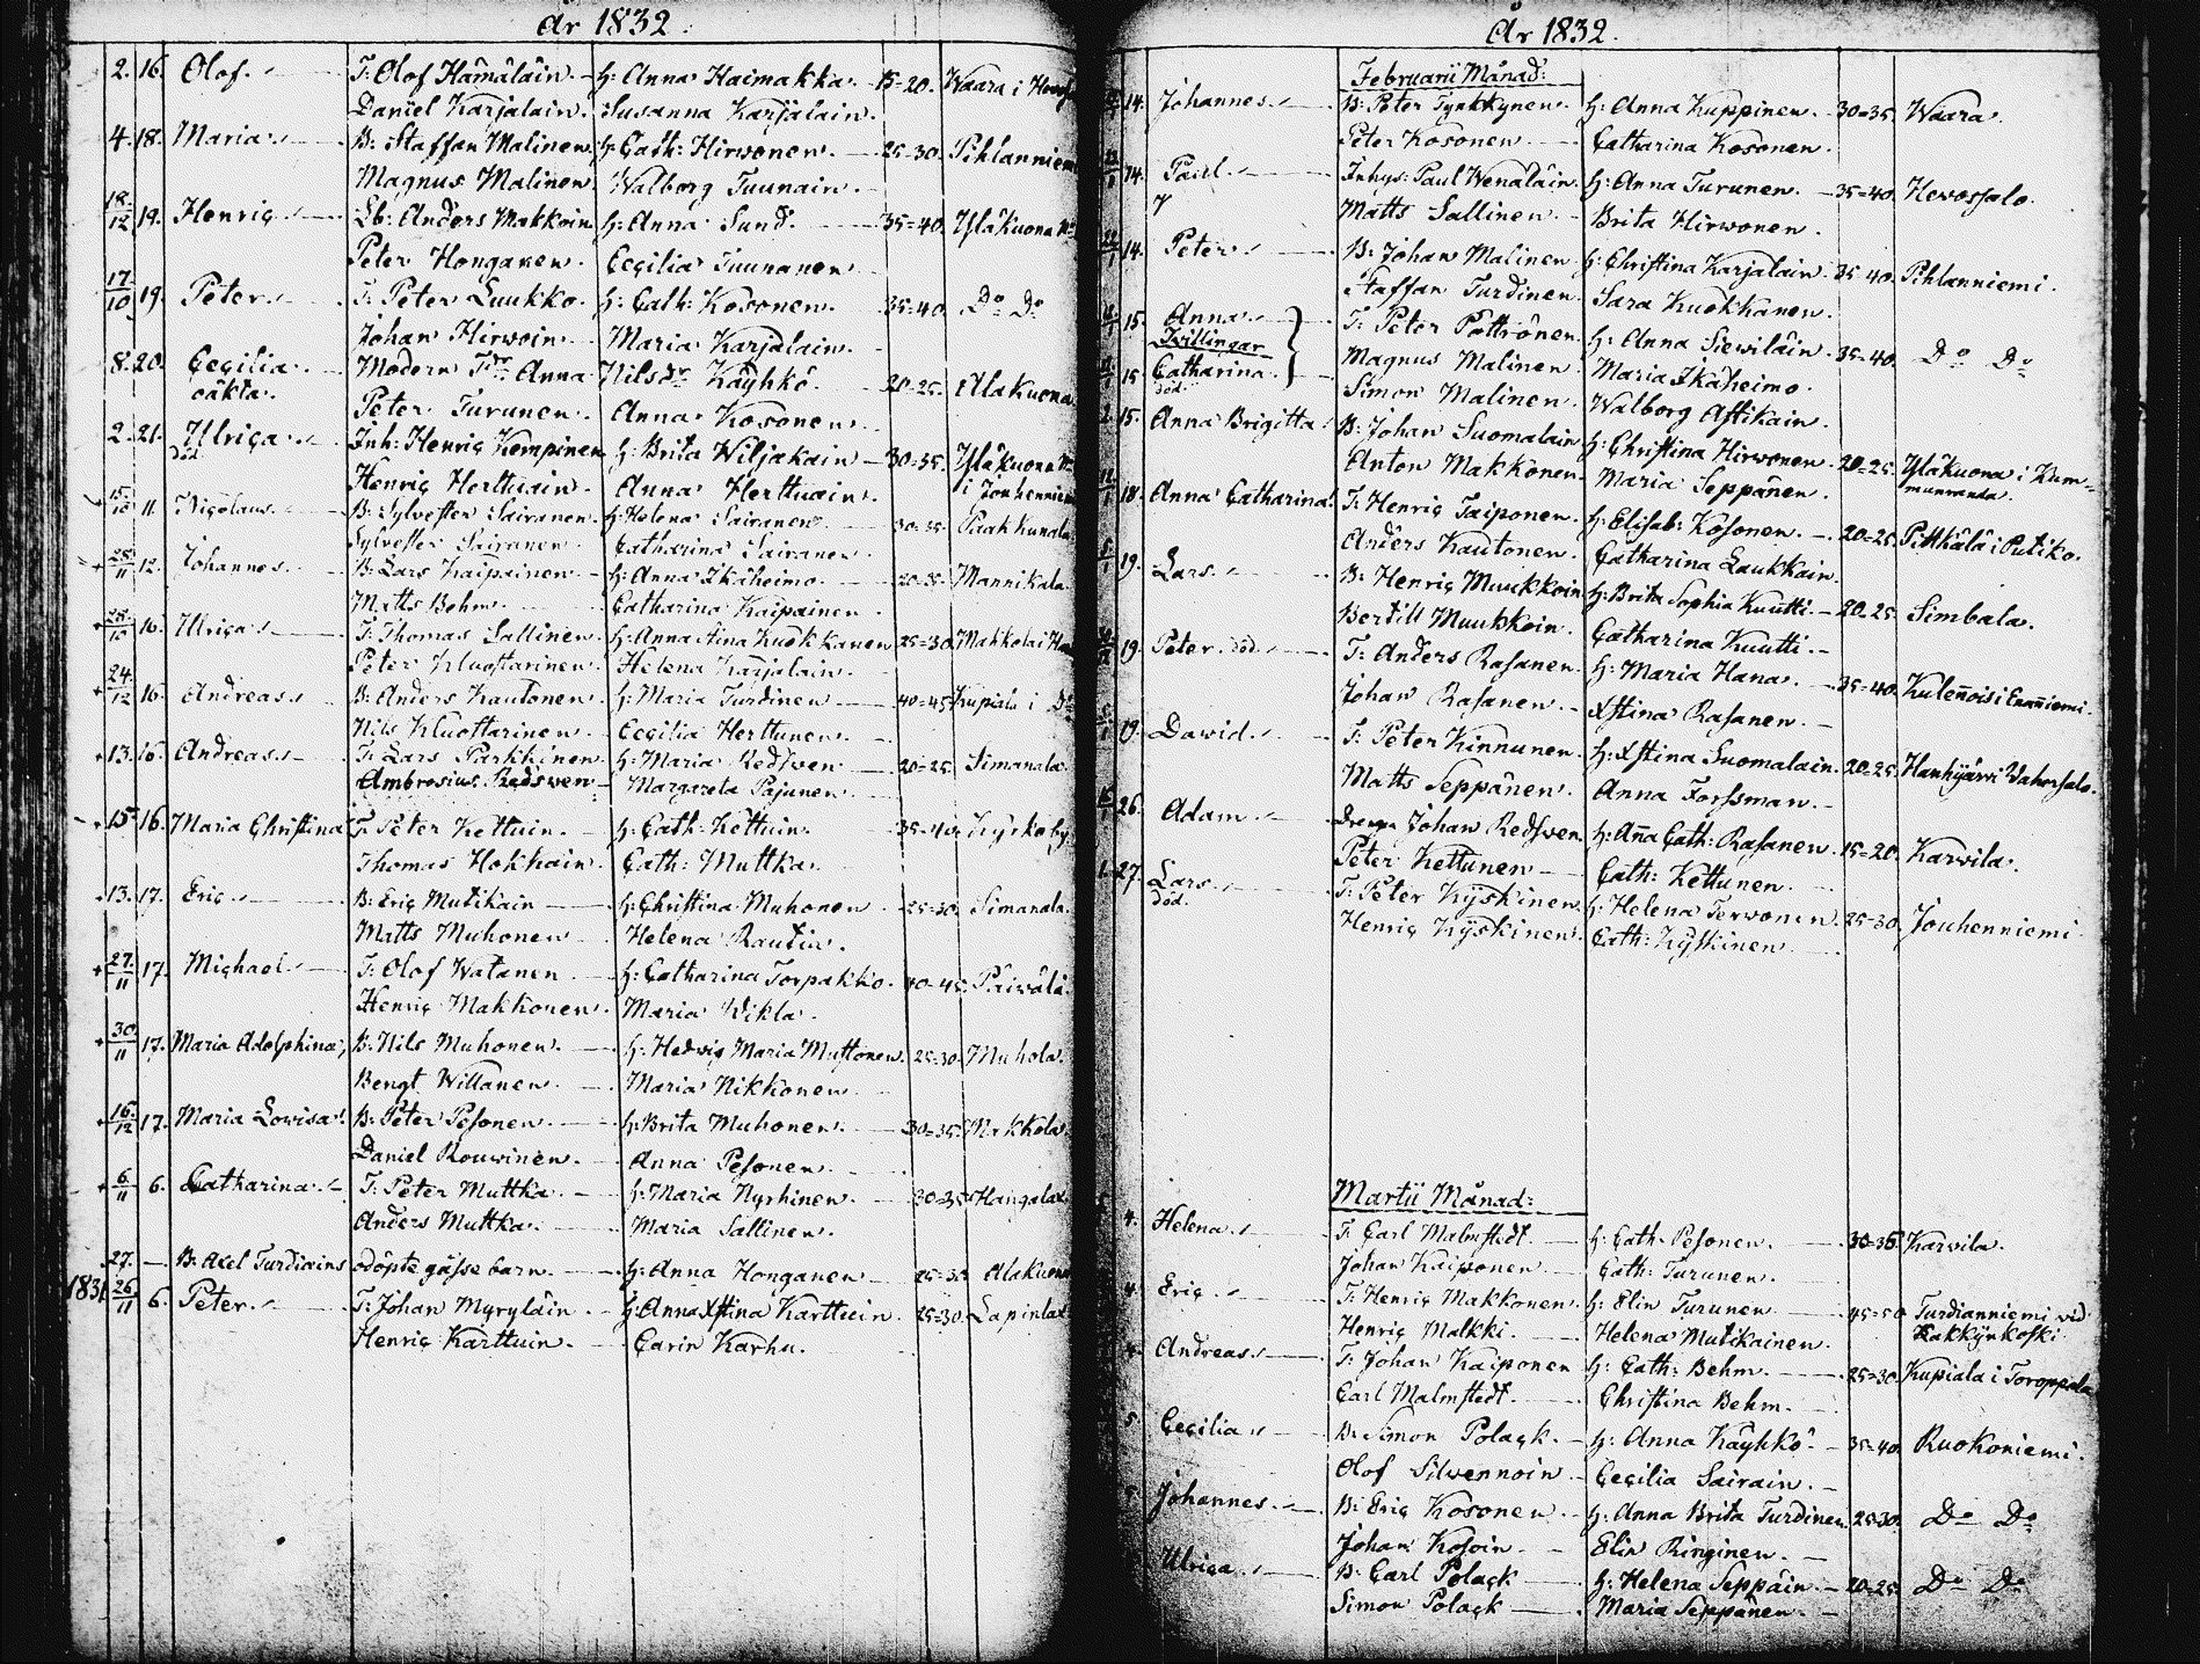 År 1832.
2. 16. Olof. T: Olof Hämäläin. H: Anna Haimakka. 15=20. Waara i
Daniel Karjalain. Susanna Karjalain.
4. 18. Maria. B: Staffan Malinen. H: Cath: Hirwonen. 25=30. Pihlanniemi
Magnus Malinen. Walborg Tuunain.
18/12 19. Henric. Lb: Anders Makkoin H: Anna Sund. 35=40. Yläkuona
Peter Honganen. Cecilia Tuunanen.
17/10 19. Peter. T: Peter Luukko. H: Cath: Kosonen. 35=40. Do Do
Johan Hirwoin. Maria Karjalain.
8. 20. Cecilia. Modern Tdr Anna Nilsdr Käyhkö. 20=25. Alakuona
oäkta. Peter Turunen. Anna Kosonen.
2. 21. Ulrica. Inh: Henric Kempinen H: Brita Wiljakain 30=35. Yläkuona
död. Henric Herttuain. Anna Herttuain. i Jouhenniemi
15/10 11. Nicolaus. B: Sylvester Sairanen. H: Helena Sairanen. 30=35. Paakkunala
Sylvester Sairanen. Catharina Sairanen.
28/11 12. Johannes. B: Lars Kaipainen. H: Anna Ikäheimo. Mannikala
Matts Behm. Catharina Kaipainen.
28/10 16. Ulrica. T: Thomas Sallinen. H: Anna Stina Kuokkanen 25=30. Makkola i
Peter Kluostarinen. Helena Karjalain.
24/12 16. Andreas. B: Anders Kautonen. H: Maria Turdinen 40=45. Kupiala i Do
Nils Kluostarinen. Cecilia Herttunen.
13. 16. Andreas. T: Lars Parkkinen. H: Maria Redswen 20=25. Simanala.
Ambrosius Redswen. Margareta Pajunen.
15. 16. Maria Christina T: Peter Kettuin. H: Cath: Kettuin. 35=40. Kyrkoby.
Thomas Hokkain. Cath: Muttka.
13. 17. Eric. B: Eric Mutikain H: Christina Muhonen 25=30. Simanala.
Matts Muhonen. Helena Rautin.
27/11 17. Michael. T: Olof Watanen H: Catharina Torpakko. 40=45. Päiwälä.
Henric Makkonen. Maria Wikla.
30/11 17. Maria Adolphina, B: Nils Muhonen. H: Hedvig Maria Muttonen. 25=30. Muhola.
Bengt Willanen. Maria Nikkonen
16/12 17. Maria Lowisa. B: Peter Pesonen. H: Brita Muhonen. 30=35. Makkola.
Daniel Rouwinen. Anna Pesonen.
6/11 6. Catharina. T: Peter Muttka. H: Maria Nyrhinen. 30=35. Hangalax
Anders Muttka. Maria Sallinen.
27. B: Axel Turdiains odöpte gosse barn. H: Anna Honganen 25=30. Alakuona
1831 26/11 6. Peter. T: Johan Myryläin. H: Anna Xstina Karttuin. 25=30. Lapinlax
Henric Karttuin. Carin Karhu.
År 1832.
Februarii Månad:
14. Johannes. B: Peter Tynkkynen. H: Anna Kuppinen. 30=35. Waara.
Peter Kosonen. Catharina Kosonen.
14. Paul. Inhys: Paul Wenäläin. H: Anna Turunen. 35=40. Hevossalo.
Matts Sallinen. Brita Hirwonen.
14. Peter. B: Johan Malinen. H: Christina Karjalain. 35=40. Pihlanniemi.
Staffan Turdinen. Sara Kuokkanen.
15. Anna. T: Peter Pöttrönen. H: Anna Siewiläin. 35=40. Do Do
Tvillingar Magnus Malinen. Maria Ikäheimo.
15. Catharina. Simon Malinen. Walborg Astikain.
död.
15. Anna Brigitta. B: Johan Suomalain H: Christina Hirwonen. 20=25. Yläkuona i Kum-
Anton Makkonen. Maria Seppänen. munranda.
18. Anna Catharina. T: Henric Taiponen. H: Elisab: Kosonen. 20=25. Pittkälä i Putiko.
Anders Kautonen. Catharina Laukkain.
19. Lars. B: Henric Muukkoin H: Brita Sophia Kuutti. 20=25. Simbala.
Bertill Muukkoin. Catharina Kuutti.
19. Peter. död. T: Anders Rasanen. H: Maria Hana. 35=40. Kulennois i Enanniemi.
Johan Rasanen. Xstina Rasanen.
19. Dawid. T: Peter Kinnunen. H: Xstina Suomalain. 20=25. Hanhijärvi Vahersalo.
Matts Seppänen. Anna Forssman.
26. Adam. Drengen Johan Redswen. H: Anna Cath: Rasanen. 15=20. Karvila.
Peter Kettunen Cath: Kettunen.
1. 27. Lars. T: Peter Kyskinen. H: Helena Terwonen. 25=30. Jouhenniemi
död. Henric Kyskinen. Cath: Kyskinen
Martii Månad:
4. Helena. T: Carl Malmstedt. H: Cath. Pesonen. 30=35. Karvila.
Johan Kaiponen Cath: Turunen.
4. Eric. T: Henric Makkonen. H: Elin Turunen 45=50 Turdianniemi vid
Henric Malkki. Helena Mutikainen. Kakkynkoski
4. Andreas. T: Johan Kaiponen H: Cath: Behm. 25=30. Kupiala i Toroppala
Carl Malmstedt. Christina Behm.
5. Cecilia. B: Simon Polack. H: Anna Käyhkö. 35=40. Ruokoniemi.
Olof Silvennoin. Cecilia Sairain.
Johannes. B: Eric Kosonen. H: Anna Brita Turdinen 25=30. Do Do
Johan Kosoin. Elin Ringinen.
Ulrica. B: Carl Polack H: Helena Seppäin. 20=25. Do Do
Simon Polack Maria Seppänen.